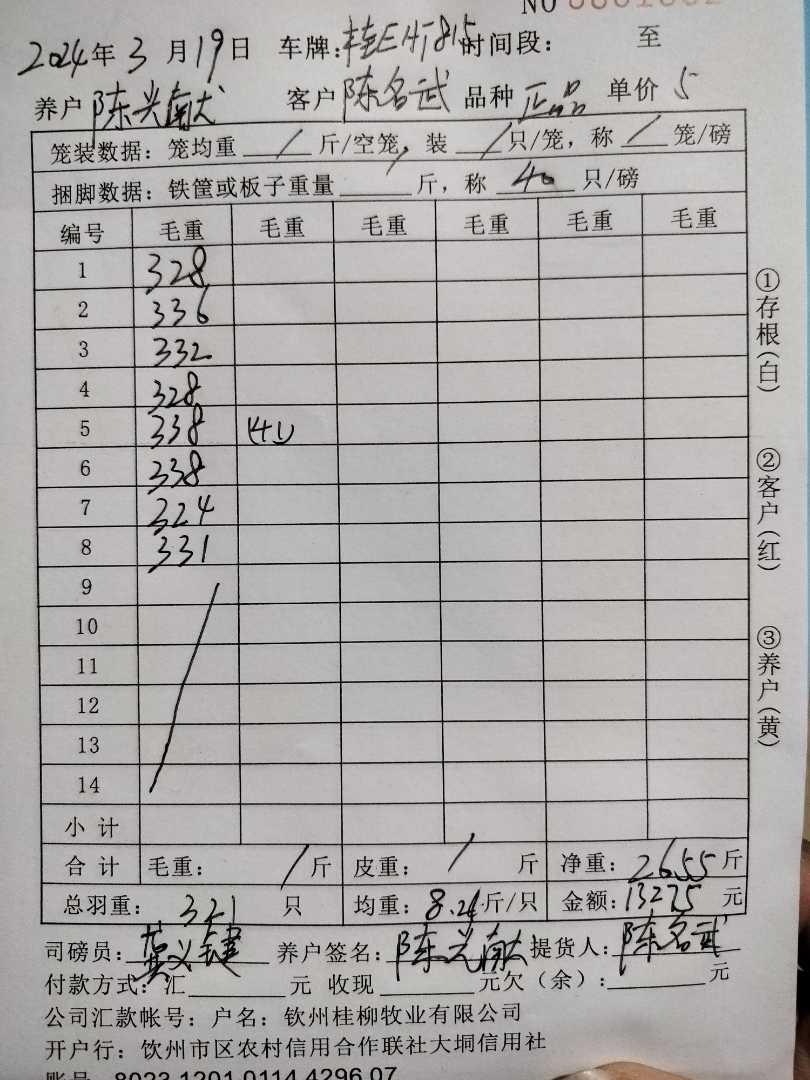 NO
2024年3月19日 车牌:桂EHT815 时间段: 至
养户 陈兴献 客户 陈名武 品种 正品 单价 5
笼装数据: 笼均重 / 斤/空笼, 装 / 只/笼, 称 / 笼/磅
捆脚数据: 铁筐或板子重量 斤, 称 40 只/磅
编号 毛重 毛重 毛重 毛重 毛重 毛重
1 328
2 336
3 332
4 328
5 338 (41)
6 338
7 324
8 331
9
10
11
12
13
14
小计
合计 毛重: / 斤 皮重: / 斤 净重: 2655 斤
总羽重: 321 只 均重: 8.26 斤/只 金额: 13275 元
司磅员: 键 养户签名: 陈兴献 提货人: 陈名武
付款方式: 汇 元 收现 元欠(余): 元
公司汇款帐号: 户名: 钦州桂柳牧业有限公司
开户行: 钦州市区农村信用合作联社大垌信用社
账号 8023 1201 0114 4296 07
①存根(白)
②客户(红)
③养户(黄)